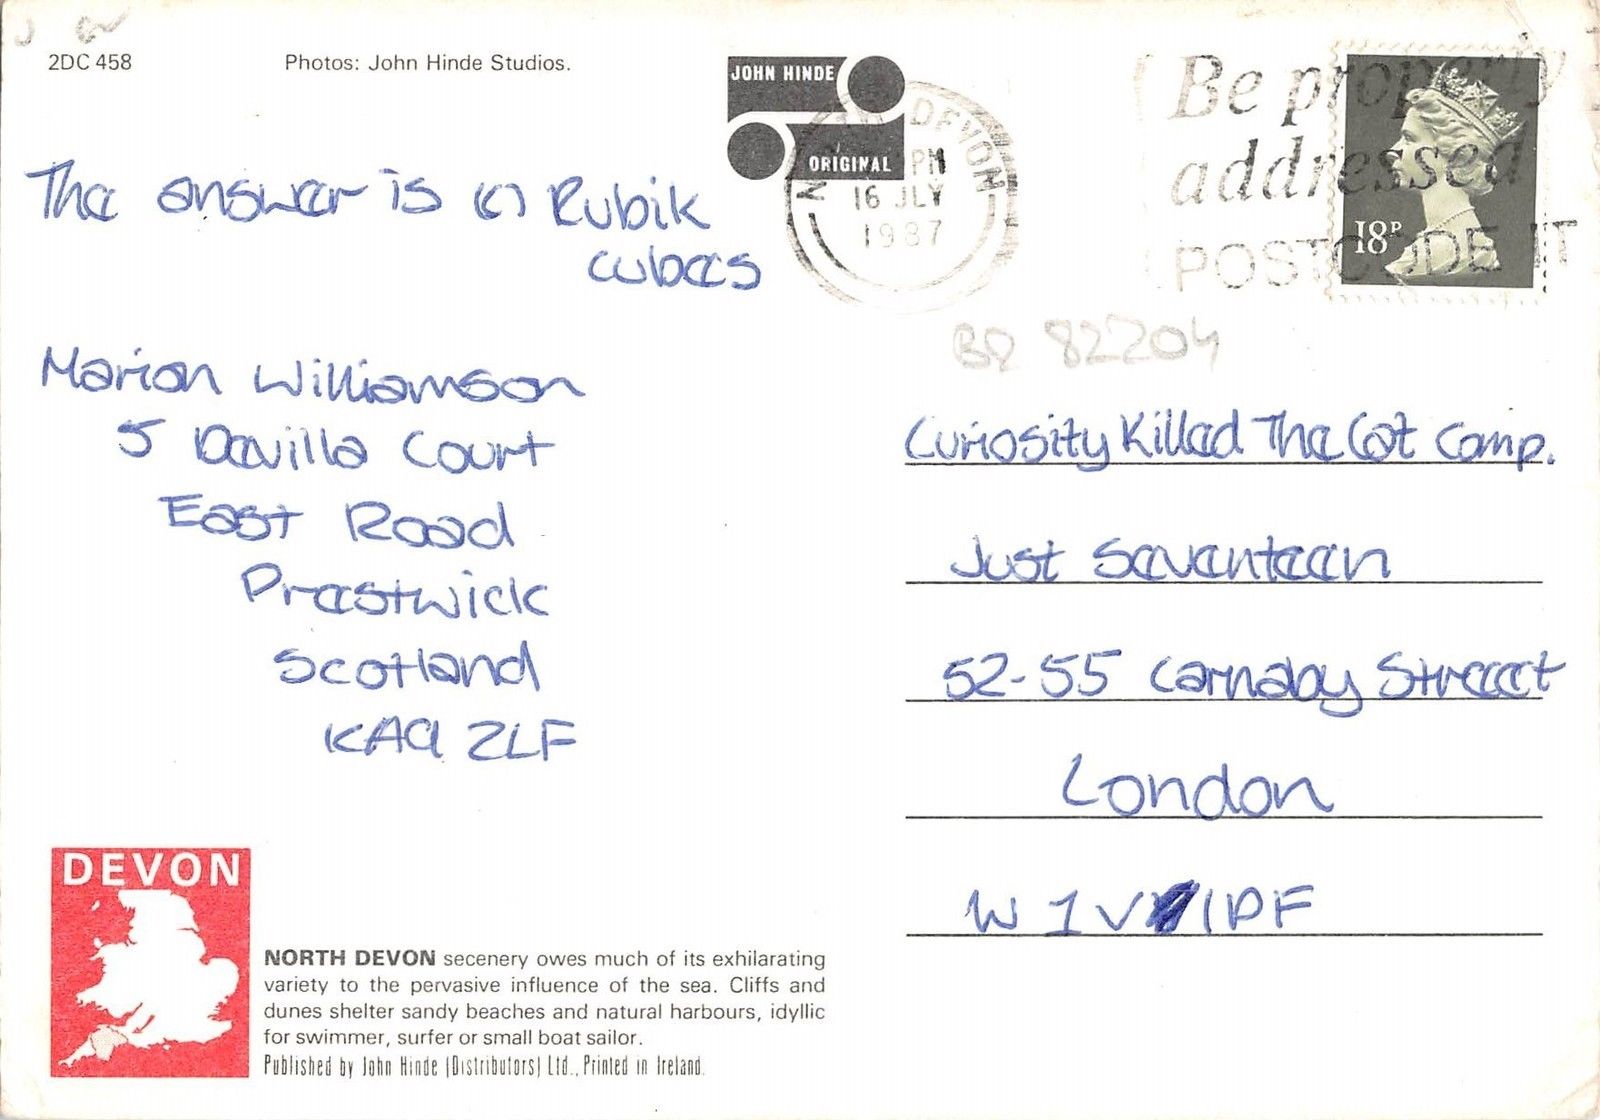 2DC 458
Photos: John Hinde Studios.
JOHN HINDE
ORIGINAL
DEVON
PM
16 JLY
1987
Be properly
addressed
POSTCODE IT
18P
The answer is (c) Rubik
cubes
BP 82204
Marion Williamson
5 Davilla Court
East Road
Prestwick
Scotland
KA9 2LF
Curiosity Killed The Cat Comp.
Just Seventeen
52-55 Carnaby Streeet
London
W1V 1PF
DEVON
NORTH DEVON secenery owes much of its exhilarating
variety to the pervasive influence of the sea. Cliffs and
dunes shelter sandy beaches and natural harbours, idyllic
for swimmer, surfer or small boat sailor.
Published by John Hinde (Distributors) Ltd., Printed in Ireland.